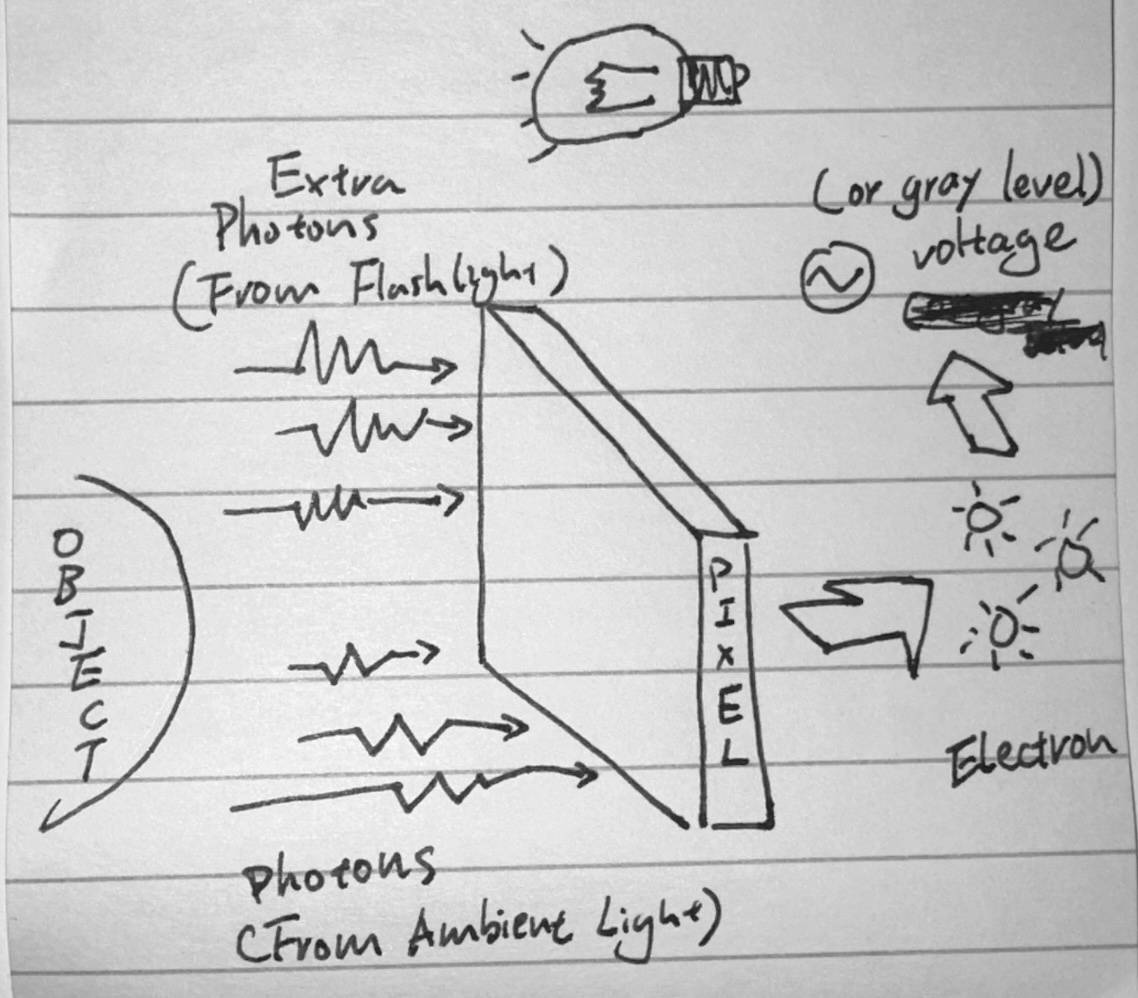 Extra
Photons
(From Flashlight)
(or gray level)
voltage
OBJECT
PIXEL
Electron
Photons
(From Ambient Light)